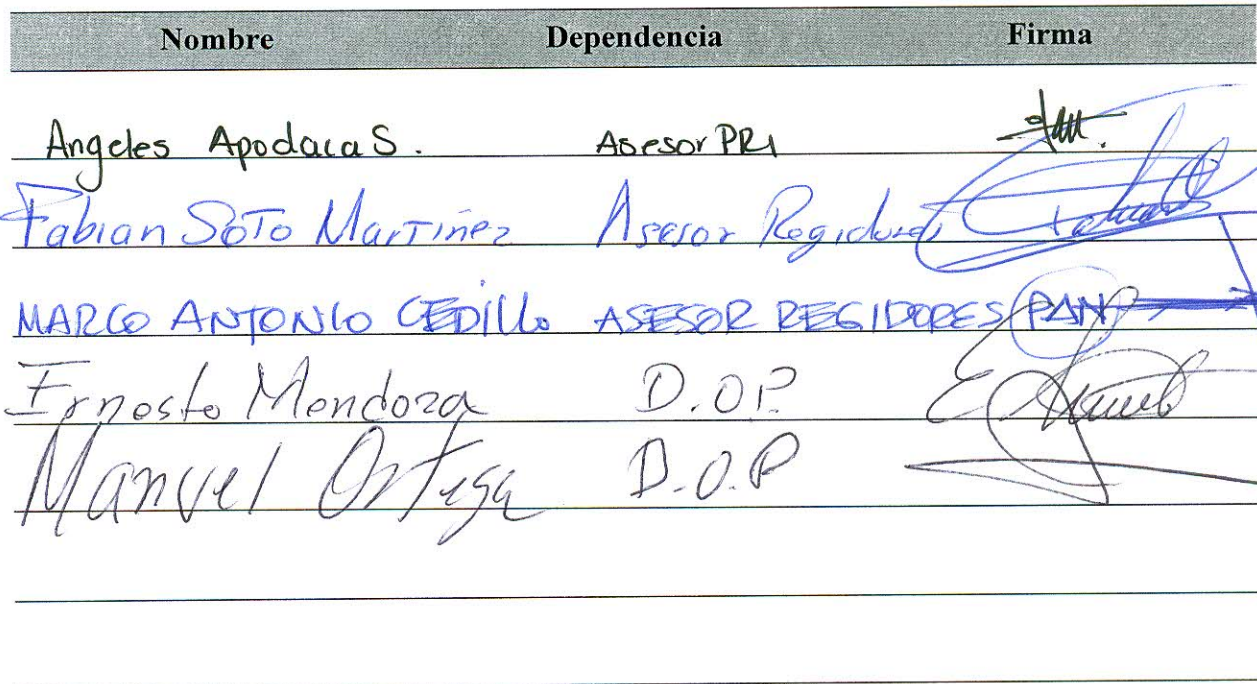 Nombre Dependencia Firma
Angeles Apodaca S. Asesor PRI
Fabian Soto Martinez Asesor Regidores
MARCO ANTONIO CEDILLO ASESOR REGIDORES PAN
Ernesto Mendoza D.O.P.
Manuel Ortega D.O.P